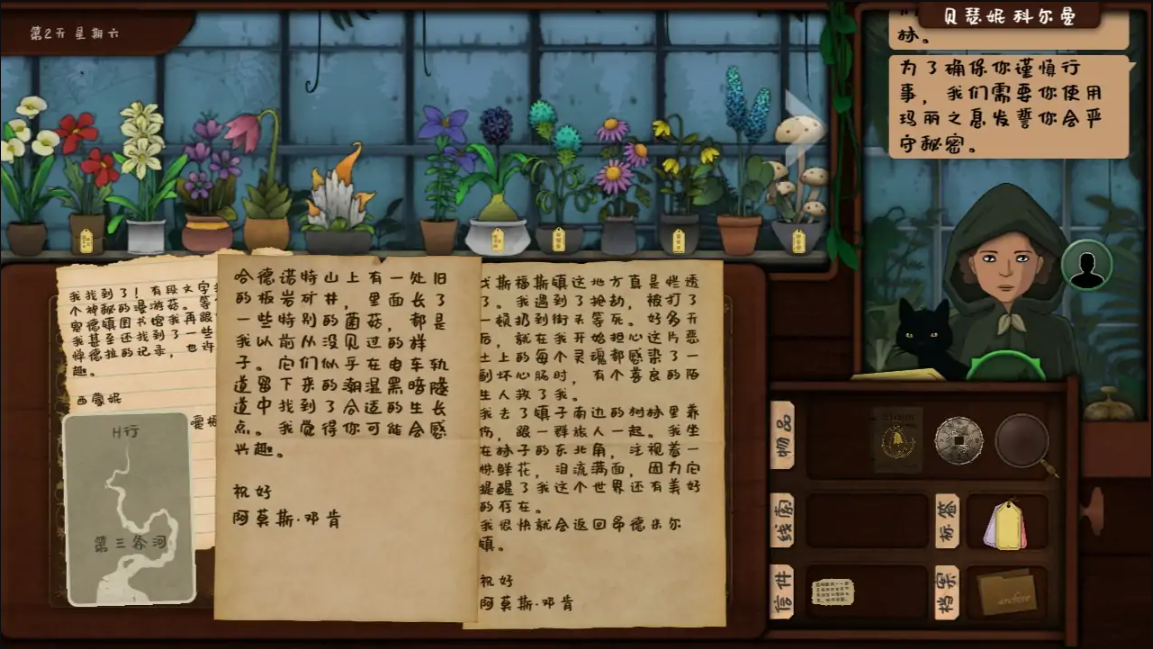 第2天 星期六
贝瑟妮科尔曼
林。
为了确保你谨慎行
事，我们需要你使用
玛丽之息发誓你会严
守秘密。
我找到了！有段文字
图书馆我再跟
我甚至还找到了一些
的记录，也许
趣。
西蒙妮
H行
第三条河
哈德诺特山上有一处旧
的板岩矿井，里面长了
一些特别的菌菇，都是
我以前从没见过的样
子。它们似乎在电车轨
道留下来的潮湿黑暗隧
道中找到了合适的生长
点。我觉得你可能会感
兴趣。
祝好
阿莫斯·邓肯
斯福斯镇这地方真是烂透
了。我遇到了抢劫，被打了
一顿扔到街头等死。好多天
后，就在我开始担心这片恶
土上的每个灵魂都感染了一
副坏心肠时，有个善良的陌
生人救了我。
我去了镇子南边的树林里养
伤，跟一群旅人一起。我坐
在林子的东北角，注视着一
株鲜花，泪流满面，因为它
提醒了我这个世界还有美好
的存在。
我很快就会返回昂德米尔
镇。
祝好
阿莫斯·邓肯
物品
线索
标签
信件
档案
archive